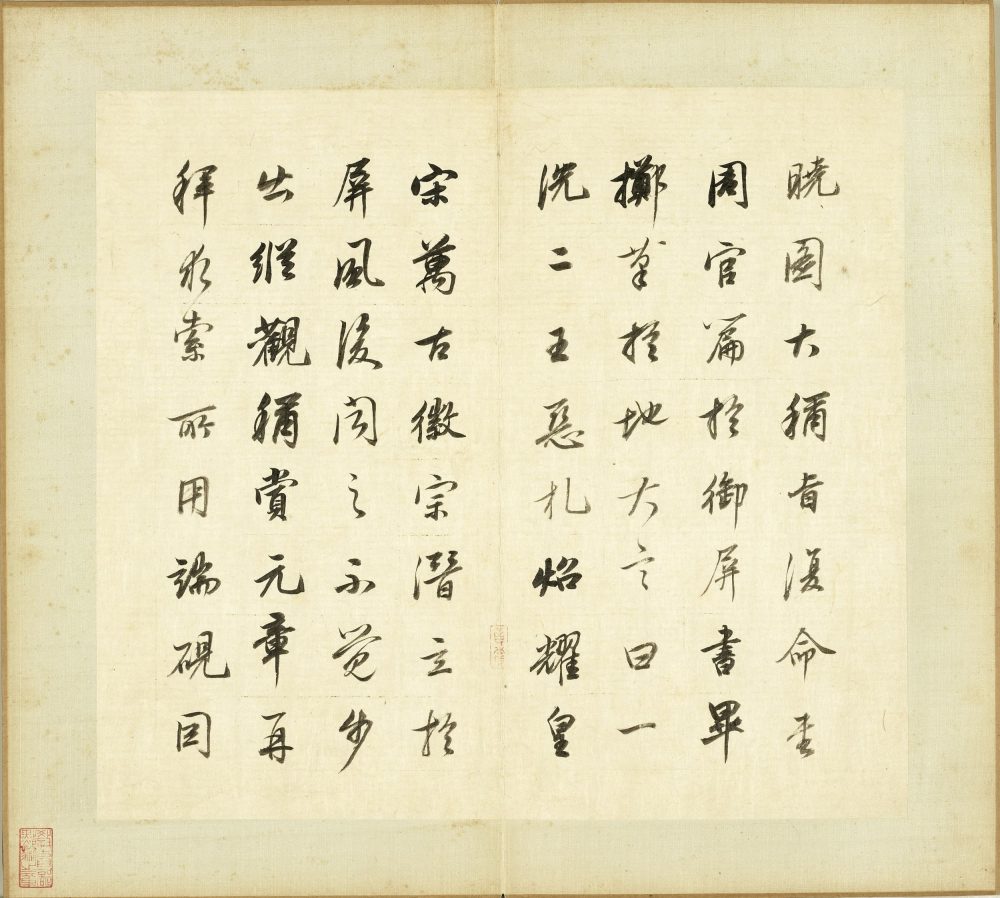 曉圖大稱旨復命書
周官篇於御屏書畢
擲筆於地大言曰一
洗二王惡札照耀皇
宋萬古徽宗潛立於
屏風後聞之不覺步
出縱觀稱賞元章再
拜求索所用端硯因